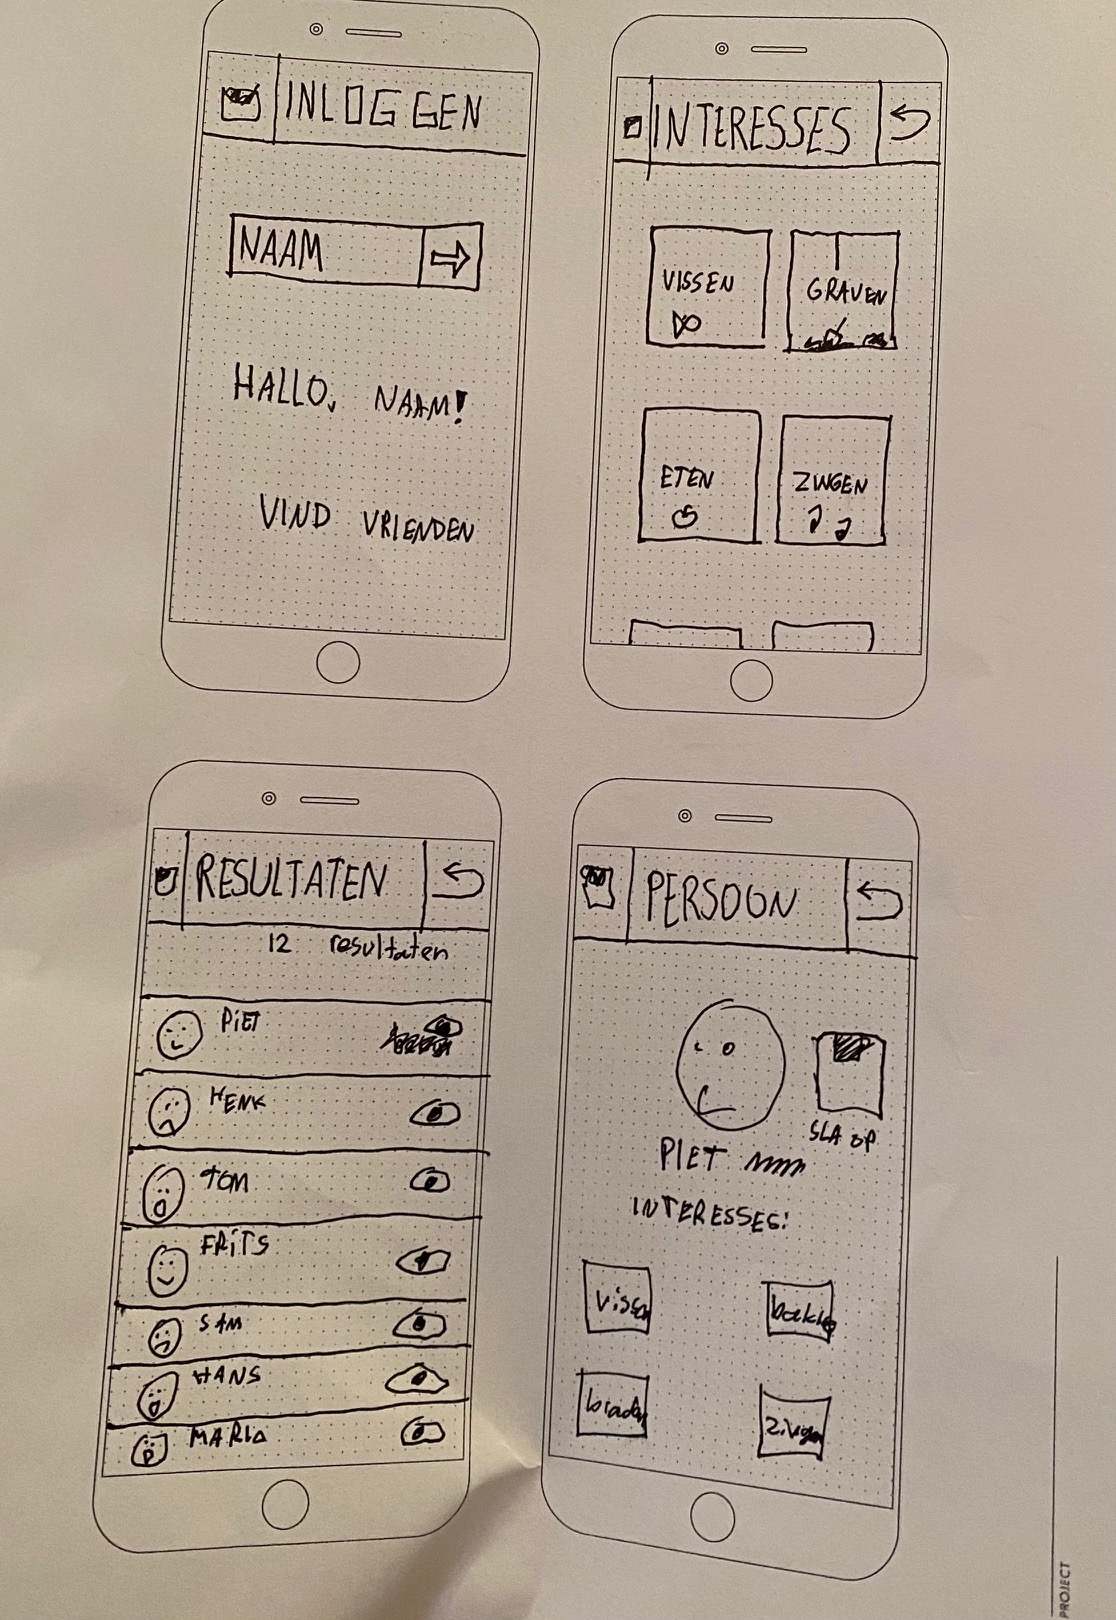 INLOGGEN
NAAM
HALLO, NAAM!
VIND VRIENDEN
INTERESSES
VISSEN
GRAVEN
ETEN
ZINGEN
RESULTATEN
12 resultaten
PIET
HENK
TOM
FRITS
SAM
HANS
MARIO
PERSOON
SLA OP
PIET
INTERESSES:
Vissen
PROJECT